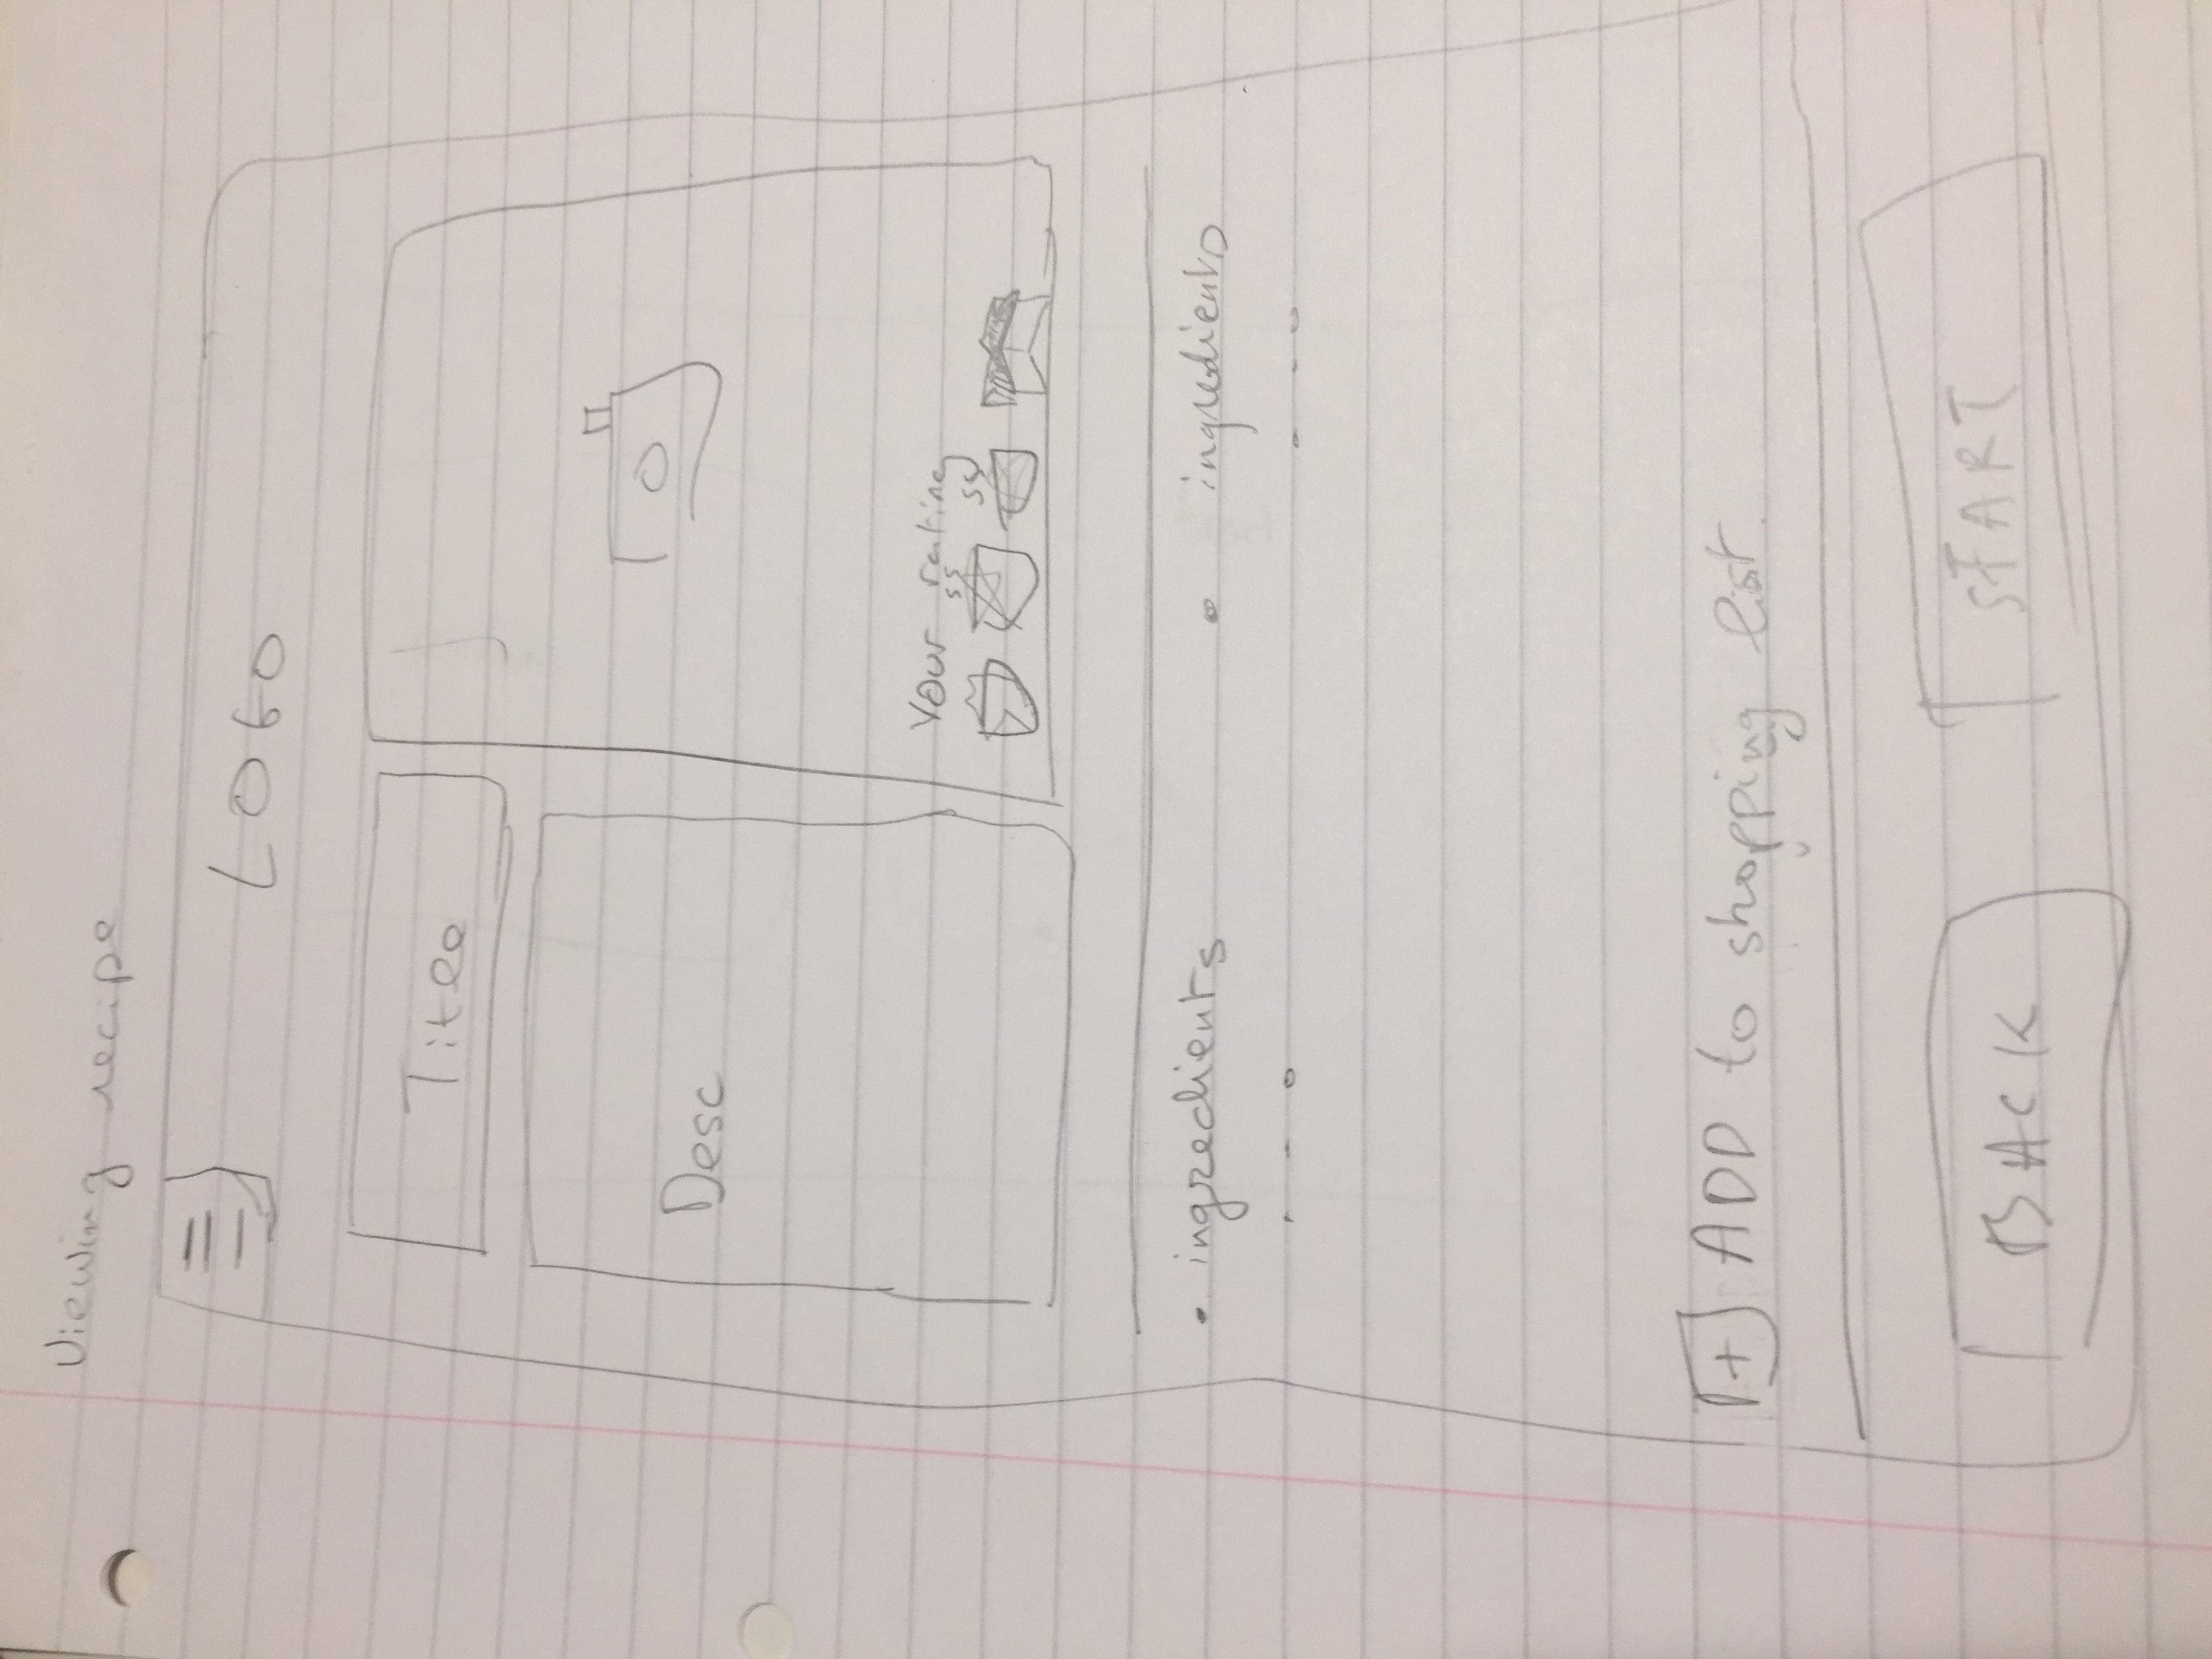 Viewing recipe
LOGO
Title
Desc
Your rating
• ingredients • ingredients
+ ADD to shopping list.
BACK START